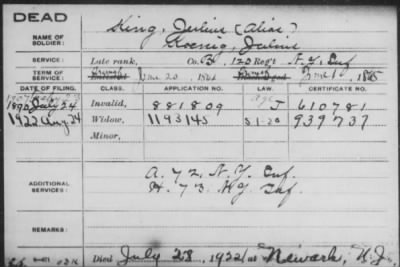 DEAD
NAME OF SOLDIER: King, Julius (Alias)
Koenig, Julius
SERVICE: Late rank, Co. B, 120 Reg't N.Y. Inf
TERM OF SERVICE: Enrolled June 20, 1861 Discharged June 1, 1865
DATE OF FILING. CLASS. APPLICATION NO. LAW. CERTIFICATE NO.
1890 July 24 Invalid, 881809 J 610781
1922 Aug 24 Widow, 1193145 5-1-20 939737
Minor,
ADDITIONAL SERVICES: A. 72 N.Y. Inf.
H. 73. NY Inf.
REMARKS:
Died July 28, 1922 at Newark, N.J.